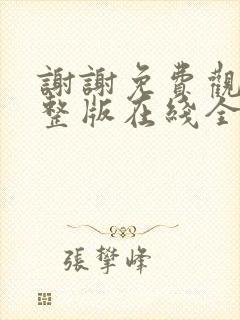 謝謝免費觀
整版在綫全
張攀峰